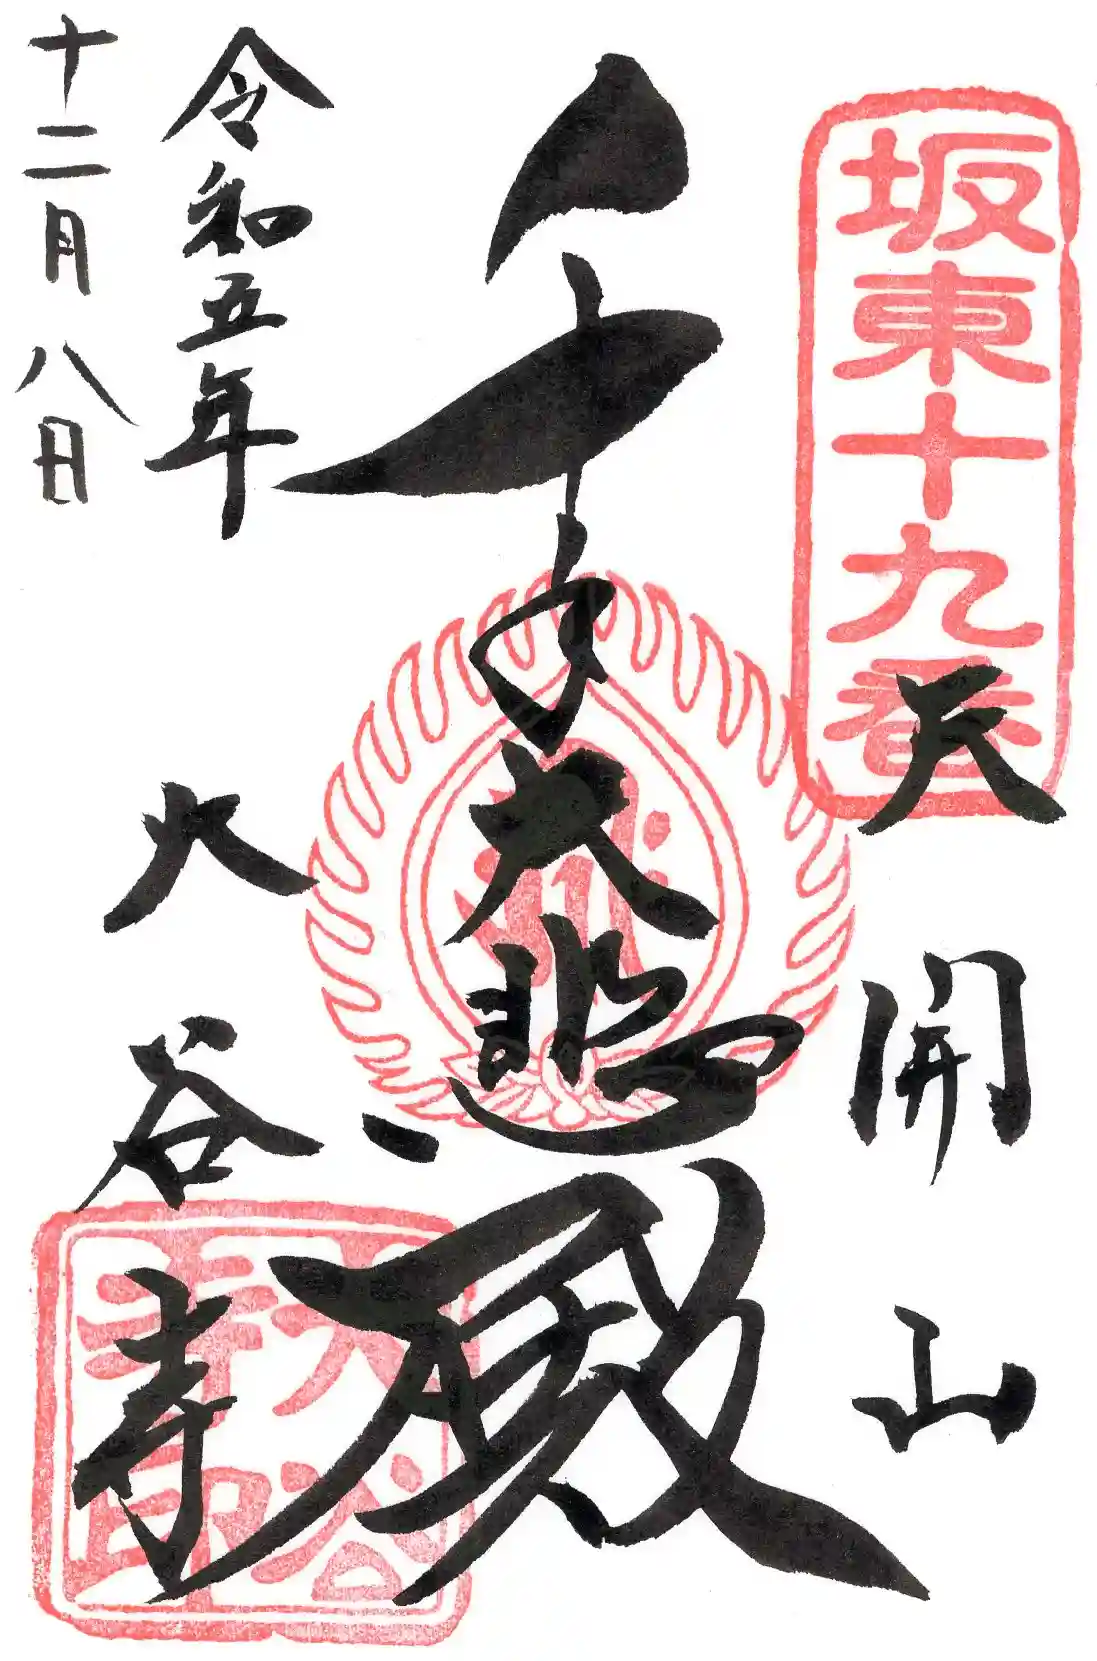 坂東十九番
天開山
千手大悲殿
大谷寺
大谷寺印
令和五年
十二月八日